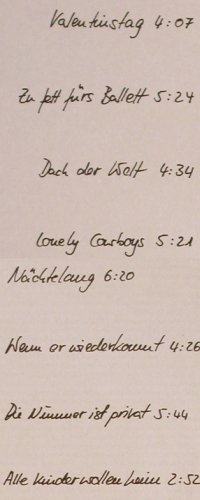 Valentinstag 4:07
Zu fett fürs Ballett 5:24
Dach der Welt 4:34
Lonely Cowboys 5:21
Nächtelang 6:20
Wenn er wiederkommt 4:26
Die Nummer ist privat 5:44
Alle Kinder wollen heim 2:52